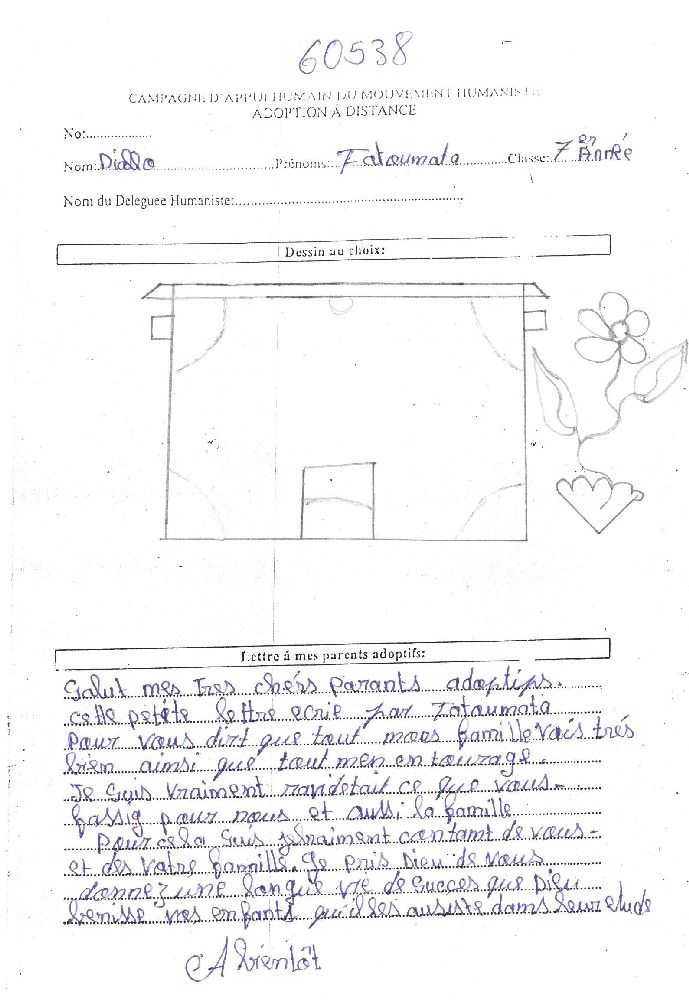 60538
CAMPAGNE D'APPUI HUMAIN DU MOUVEMENT HUMANISTE
ADOPTION À DISTANCE
No:...................
Nom: Diallo Prénoms: Fatoumata Classe: 7 en Année
Nom du Deleguee Humaniste:
Dessin au choix:
Lettre à mes parents adoptifs:
Salut mes Tres chers parants adoptips.
cette petéte lettre ecrie par Fatoumata
Pour vous dirt que tout moes famille vais trés
bien ainsi que tout men entourage.
Je suis vraiment ravi detait ce que vous-
fassig pour nous et aussi la famille
Pour cela suis vraiment contamt de vous-
et des Vatre famille. Je pris Dieu de vous
donnez une langue vie de succes que Dieu
benisse ves enfants qu'il les aussiste dams leur etude
A bientôt